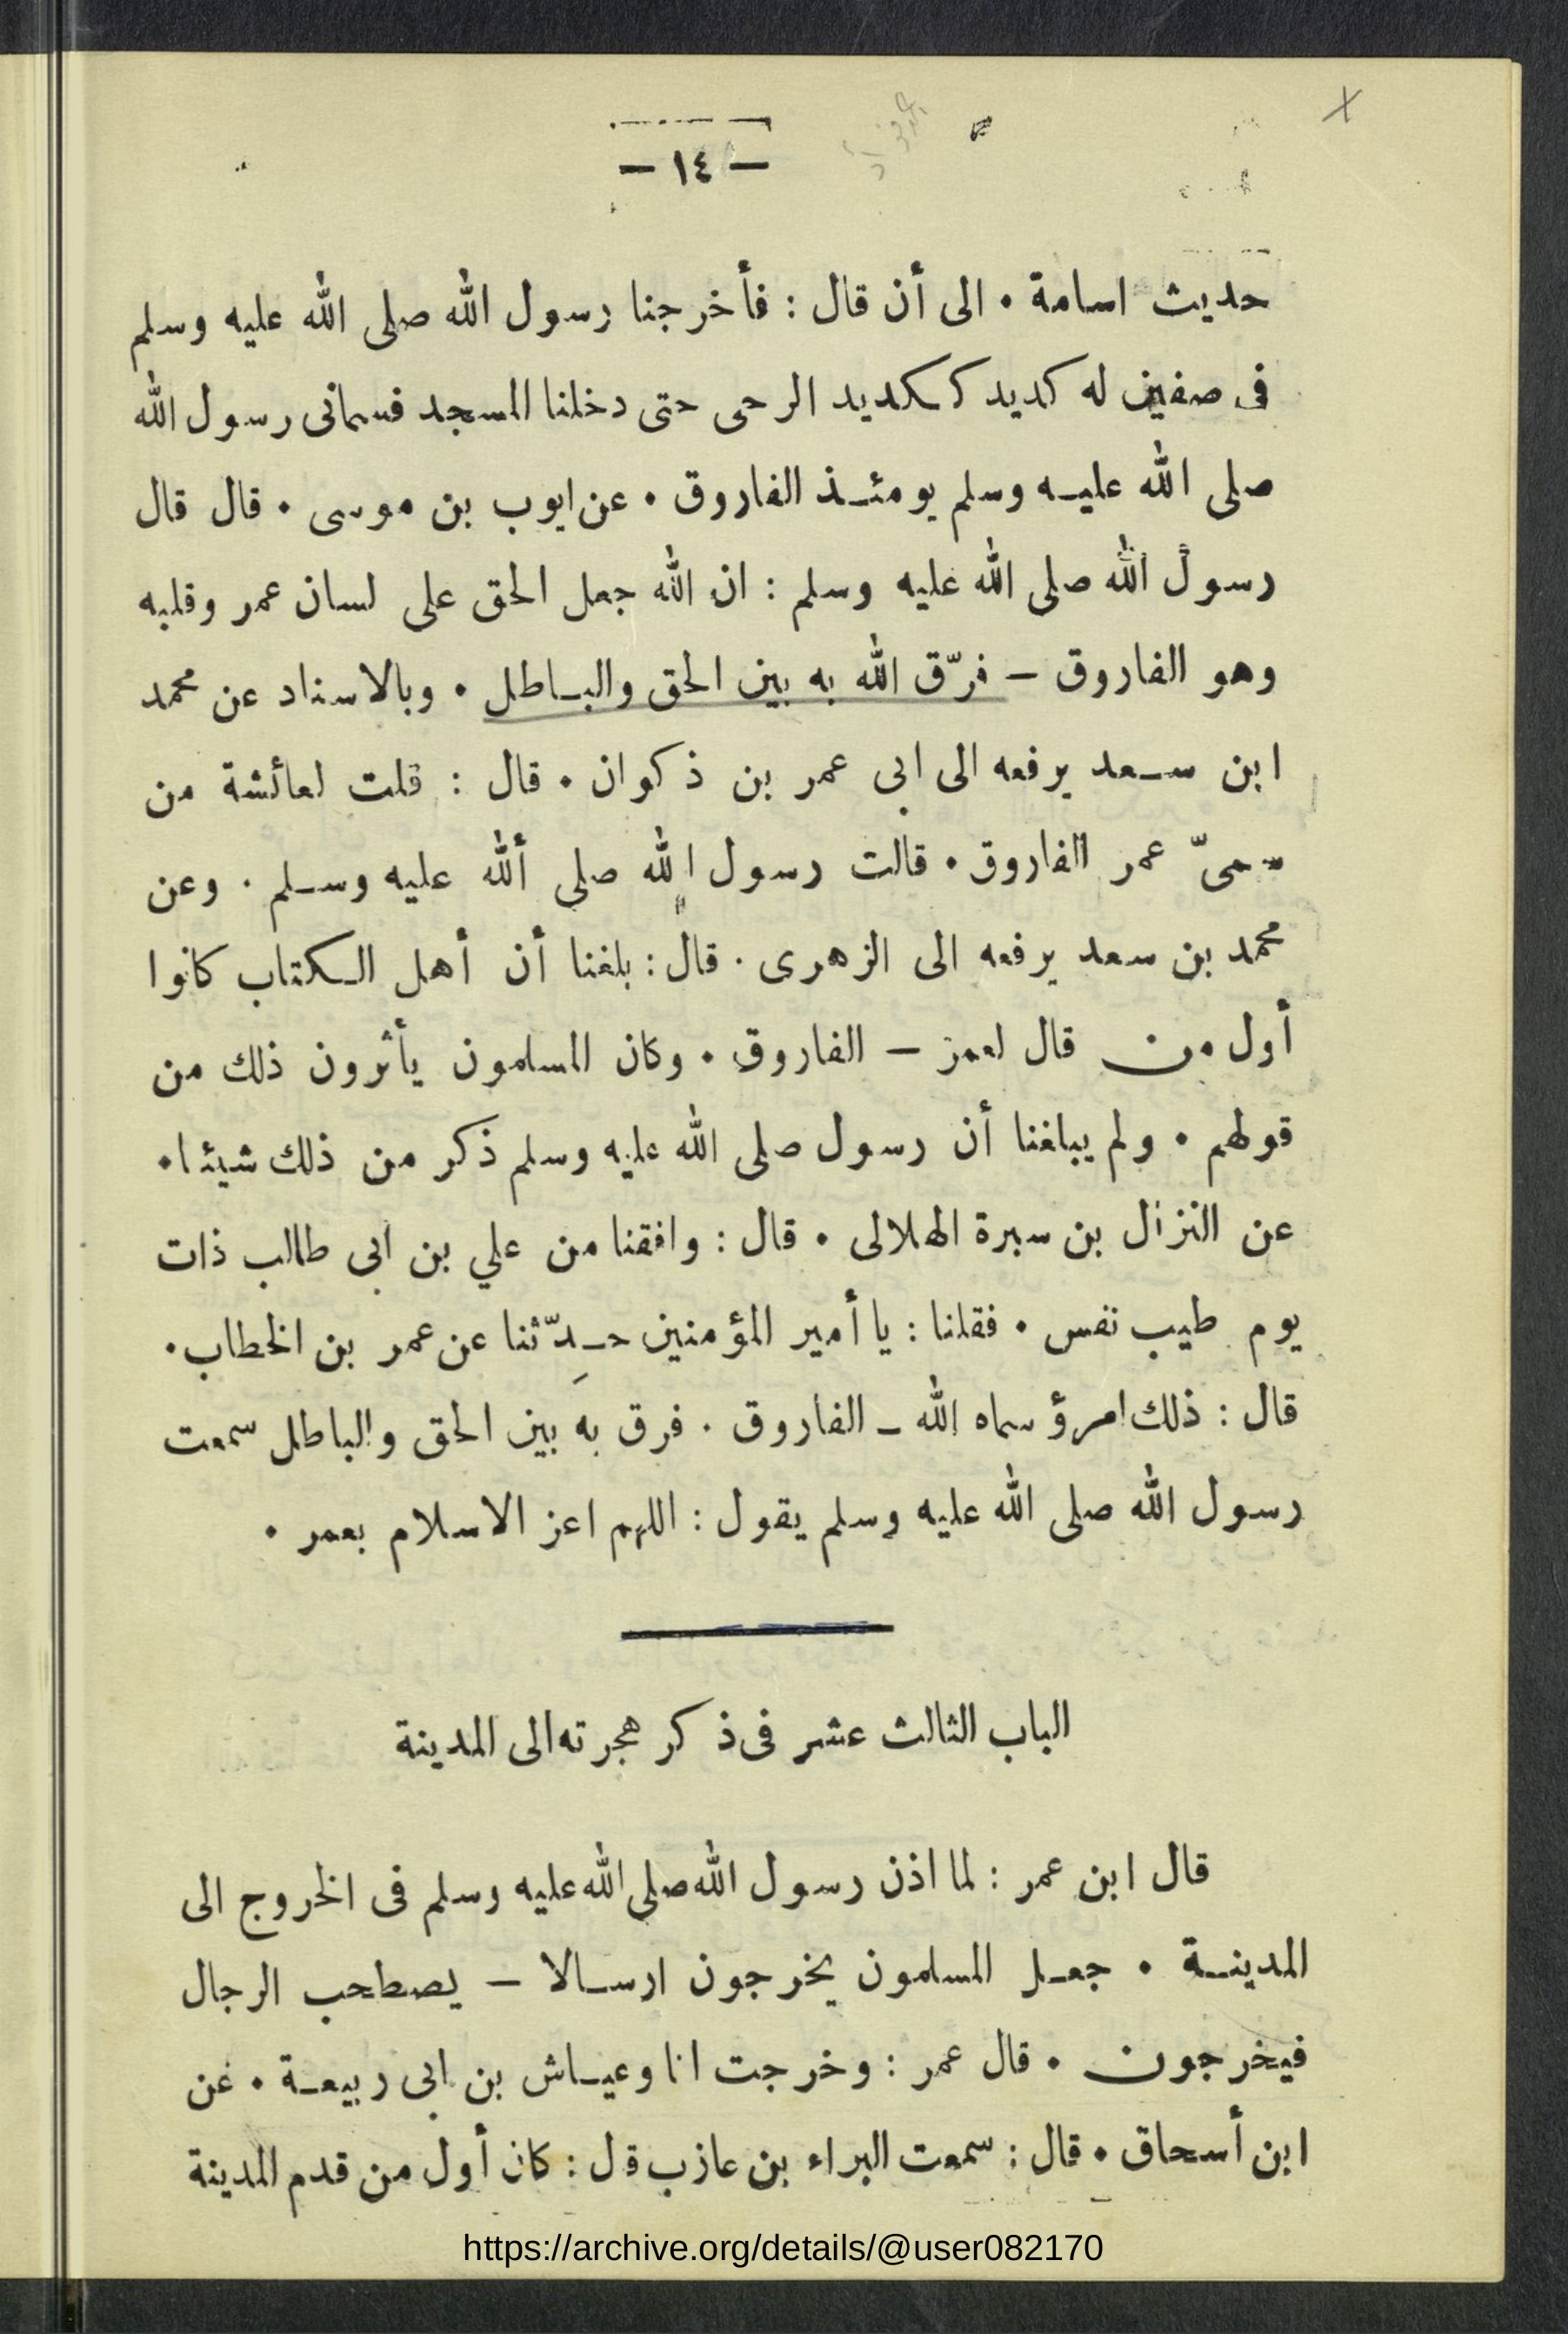 — ١٤ —
حديث اسامة • الى أن قال : فأخرجنا رسول الله صلى الله عليه وسلم
فى صفين له كديد ككديد الرحى حتى دخلنا المسجد فسمانى رسول الله
صلى الله عليه وسلم يومئذ الفاروق • عن ايوب بن موسى • قال قال
رسول الله صلى الله عليه وسلم : ان الله جعل الحق على لسان عمر وقلبه
وهو الفاروق — فرّق الله به بين الحق والباطل • وبالاسناد عن محمد
ابن سعد يرفعه الى ابى عمر بن ذكوان • قال : قلت لعائشة من
سمىّ عمر الفاروق • قالت رسول الله صلى ألله عليه وسلم . وعن
محمد بن سعد يرفعه الى الزهرى . قال : بلغنا أن أهل الكتاب كانوا
أول من قال لعمر — الفاروق • وكان المسلمون يأثرون ذلك من
قولهم • ولم يبلغنا أن رسول صلى الله عليه وسلم ذكر من ذلك شيئا •
عن النزال بن سبرة الهلالى • قال : وافقنا من علي بن ابى طالب ذات
يوم طيب نفس • فقلنا : يا أمير المؤمنين حدِّثنا عن عمر بن الخطاب •
قال : ذلك امرؤ سماه الله ـ الفاروق . فرق به بين الحق والباطل سمعت
رسول الله صلى الله عليه وسلم يقول : اللهم اعز الاسلام بعمر •
الباب الثالث عشر فى ذكر هجرته الى المدينة
قال ابن عمر : لما اذن رسول الله صلى الله عليه وسلم فى الخروج الى
المدينة • جعل المسلمون يخرجون ارسالا — يصطحب الرجال
فيخرجون • قال عمر : وخرجت انا وعياش بن ابى ربيعة • عن
ابن أسحاق • قال : سمعت البراء بن عازب قل : كان أول من قدم المدينة
https://archive.org/details/@user082170